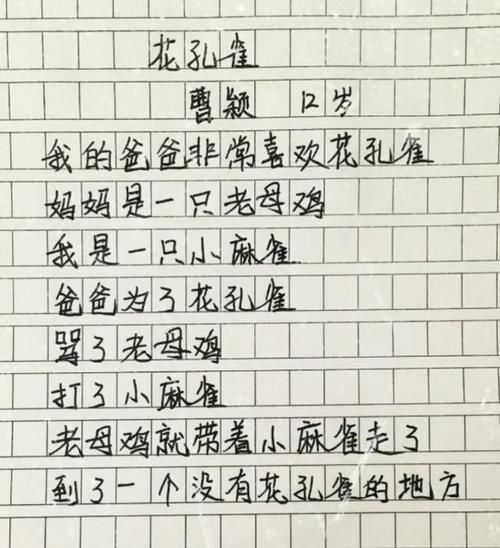 花孔雀
曹颖 12岁
我的爸爸非常喜欢花孔雀
妈妈是一只老母鸡
我是一只小麻雀
爸爸为了花孔雀
骂了老母鸡
打了小麻雀
老母鸡就带着小麻雀走了
到了一个没有花孔雀的地方